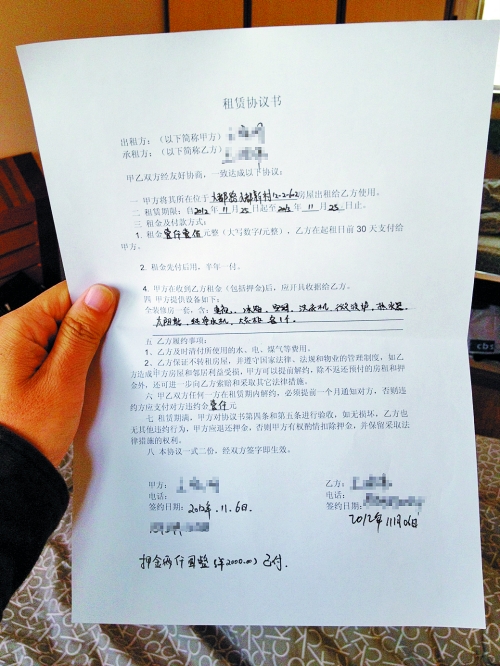 租赁协议书
出租方:(以下简称甲方)
承租方:(以下简称乙方)
甲乙双方经友好协商,一致达成以下协议:
一 甲方将其所在位于 12-2-602房屋出租给乙方使用。
二 租赁期限:自2012年11月25日起至 年11月25日止。
三 租金及付款方式:
1. 租金 元整(大写数字/元整),乙方在起租日前30天支付给
甲方。
2. 租金先付后用,半年一付。
4. 甲方在收到乙方租金(包括押金)后,应开具收据给乙方。
四 甲方提供设备如下:
全装修房一套,含:电视、冰箱、空调、洗衣机、微波炉、热水器、
各1个.
五 乙方履约事项:
1、乙方及时清付所使用的水、电、煤气等费用。
2、乙方保证不转租房屋,并遵守国家法律、法规和物业的管理制度,如乙
方造成甲方房屋和邻居利益受损,甲方可以提前解约,除不退还预付的房租和押
金外,还可进一步向乙方索赔和采取其它法律措施。
六 甲乙双方任何一方在租赁期内解约,必须提前一个月通知对方,否则违
约方应支付对方违约金壹仟元
七 租赁期满,甲方对协议第四条和第五条进行验收,如无损坏,乙方也
无其他违约行为,甲方应退还押金,否则甲方有权酌情扣除押金,并保留采取法
律措施的权利。
八 本协议一式二份,经双方签字即生效。
甲方:
电话:
签约日期:2012年.11.6日.
乙方:
电话:
签约日期:
2012年11月06日
押金两仟圆整(¥2000.00)已付.